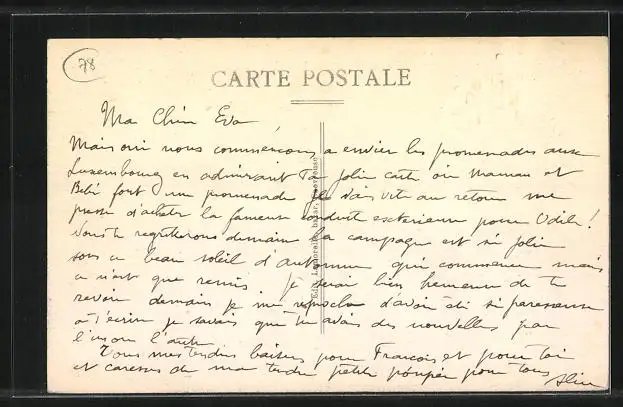 78
CARTE POSTALE
Ma Chère Eva
Mais oui nous commençons a envier les promenades aux
Luxembourg en admirant ta jolie carte où Maman et
Bébé font une promenade je vais vite au retour me
presse d'acheter la fameuse conduite exterieure pour Odile !
vous regretterons demain la campagne est si jolie
sous ce beau soleil d'automne qui commence mais
ce n'est que remis je serai bien heureuse de te
revoir demain je me reproche d'avoir été si paresseuse
à t'écrire je savais que tu avais des nouvelles par
l'un ou l'autre
Tous mes tendres baisers pour François et pour toi
et caresses de ma tendre petite poupée pour tous
Aline